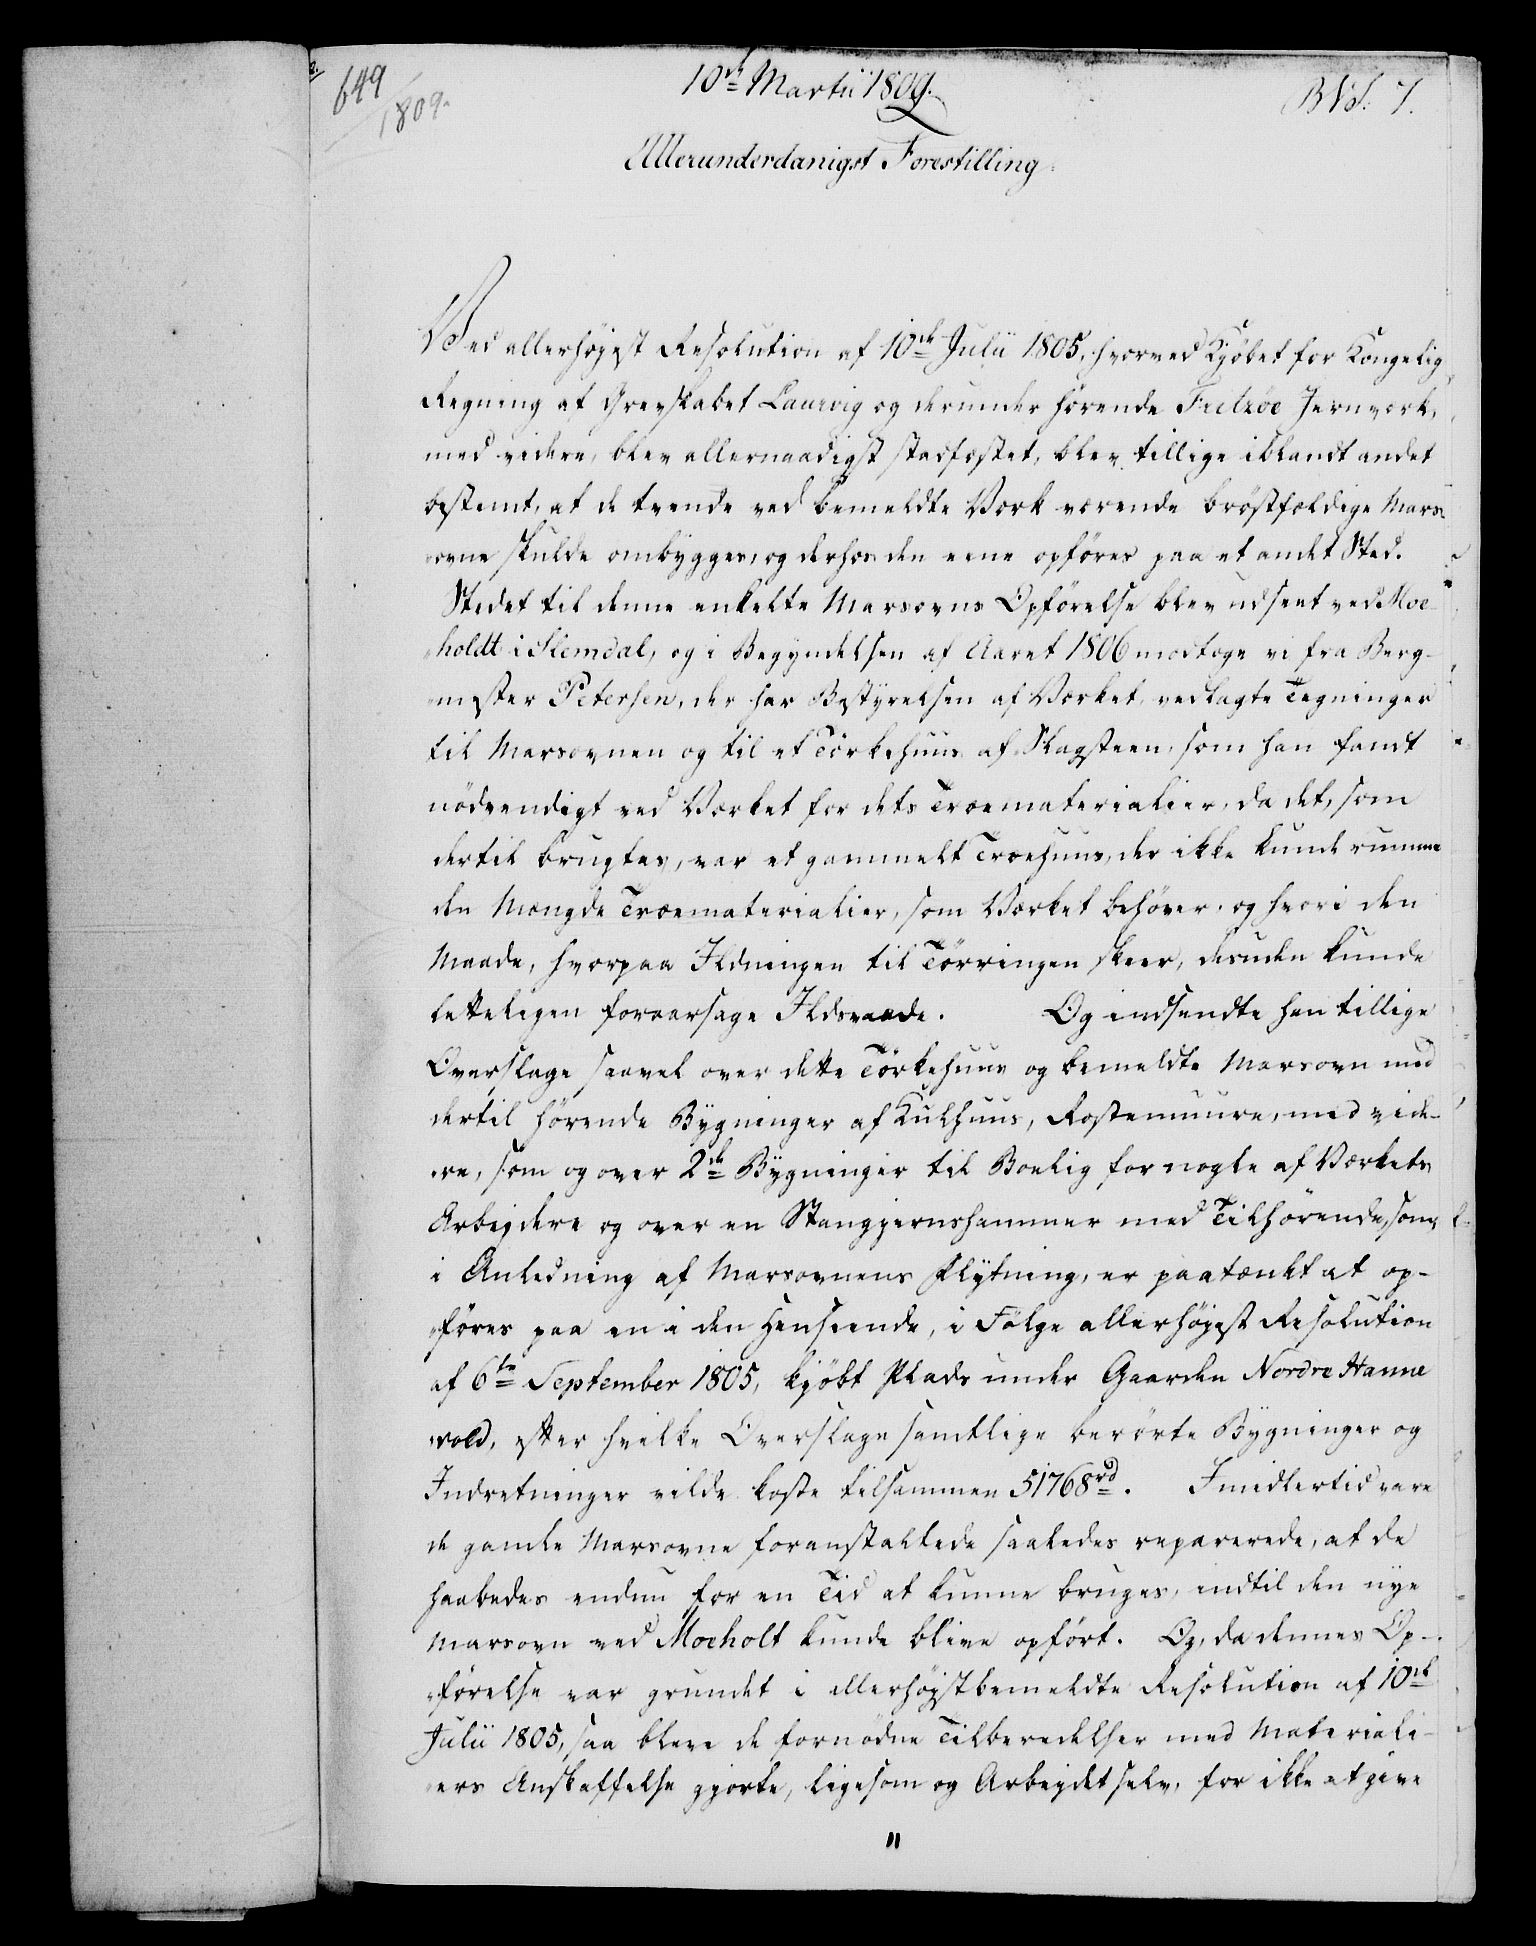 649
1809.
10de Martii 1809.
BVS: 7.
Allerunderdanigst Forestilling
Ved allerhøjest Resolution af 10de Julii 1805, hvorved Kjöbet for Kongelig
Regning af Grevskabet Laurvig og derunder hörende Fritzöe Jernværk,
med videre, blev allernaadigst stadfæstet, blev tillige iblandt andet
bestemt, at de tvende ved bemeldte Værk værende bröstfældige Mars-
ovne skulde ombygges, og derhos den eene opföres paa et andet Sted.
Stedet til denne enkelte Marsovns Opförelse blev udseet ved Moe-
holdt i Slemdal, og i Begyndelsen af Aaret 1806 modtoge vi fra Berg-
mester Petersen, der har Bestyrelsen af Værket, vedlagte Tegninger
til Marsovnen og til et Törkehuus af Slagsteen, som han fandt
nödvendigt ved Værket for dets Træematerialier, da det, som
dertil brugtes, var et gammelt Træehuus, der ikke kunde rumme
den Mængde Træematerialier, som Værket behöver, og hvori den
Maade, hvorpaa Ildningen til Törringen skeer, desuden kunde
letteligen foraarsage Ildsvaade. Og indsendte han tillige
Overslage saavel over dette Törkehuus og bemeldte Marsovn med
dertil hörende Bygninger af Kulhuus, Röstemuure, med vide-
re, som og over 2de Bygninger til Boelig for nogle af Værkets
Arbejdere og over en Stangjernshammer med Tilhörende, som,
i Anledning af Marsovnens Flytning, er paatænkt at op-
föres paa en i den Henseende, i Fölge allerhöjest Resolution
af 6te September 1805, kjöbt Plads under Gaarden Nordre Hanne
vold, efter hvilke Overslage samtlige berörte Bygninger og
Indretninger vilde koste tilsammen 51768 rd. Imidlertid vare
de gamle Marsovne foranstaltede saaledes reparerede, at de
haabedes endnu for en Tid at kunne bruges, indtil den nye
Marsovn ved Moeholt kunde blive opfört. Og, da dennes Op-
förelse var grundet i allerhöjstbemeldte Resolution af 10de
Julii 1805, saa bleve de fornödne Tilberedelser med Materiali-
ers Anskaffelse gjorte, ligesom og Arbejdet selv, for ikke at give